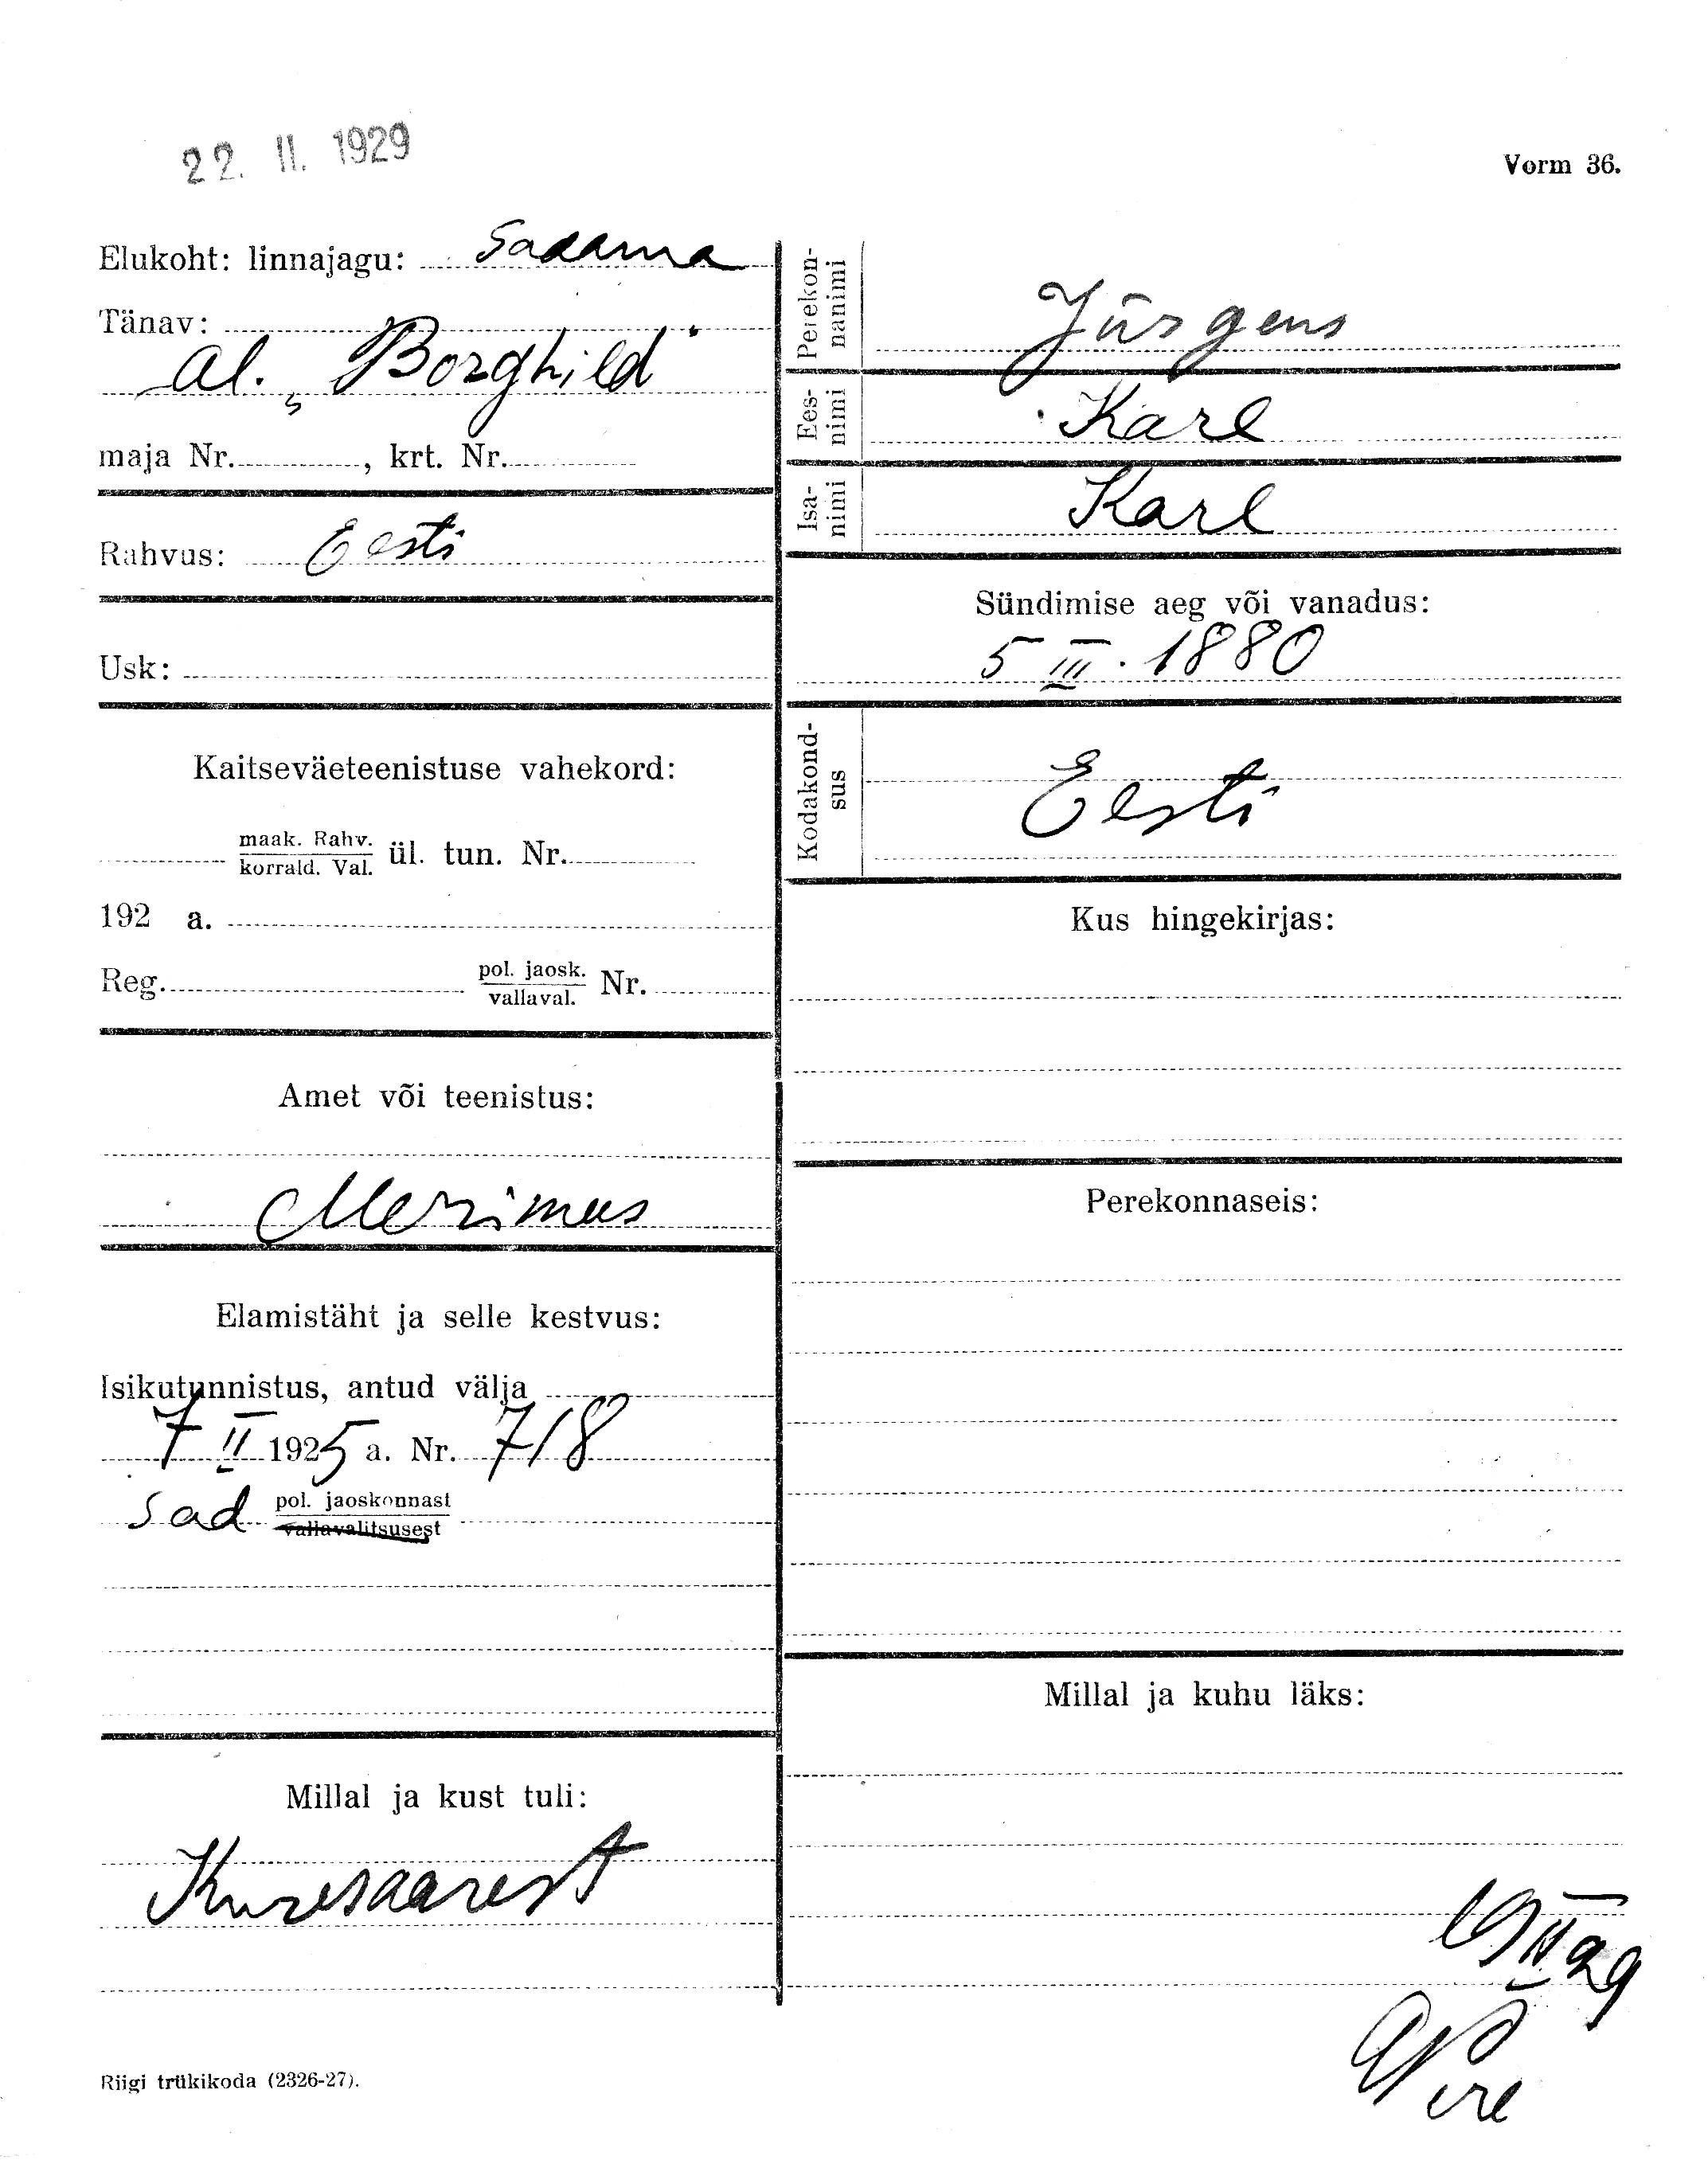 22. II. 1929
Vorm 36.
Elukoht: linnajagu: Sadama
Tänav:
al. „Borghild"
maja Nr. , krt. Nr.
Rahvus: Eesti
Usk:
Kaitseväeteenistuse vahekord:
maak. Rahv.
korrald. Val. ül. tun. Nr.
192 a.
Reg. pol. jaosk.
vallaval. Nr.
Amet või teenistus:
Merimees
Elamistäht ja selle kestvus:
Isikutunnistus, antud välja
7 II 1925 a. Nr. 718
Sad pol. jaoskonnast
vallavalitsusest
Millal ja kust tuli:
Kuresaarest
Riigi trükikoda (2326-27).
Perekon-
nanimi
Jürgens
Ees-
nimi
Karl
Isa-
nimi
Karl
Sündimise aeg või vanadus:
5 III. 1880
Kodakond-
sus
Eesti
Kus hingekirjas:
Perekonnaseis:
Millal ja kuhu läks:
19 II 29